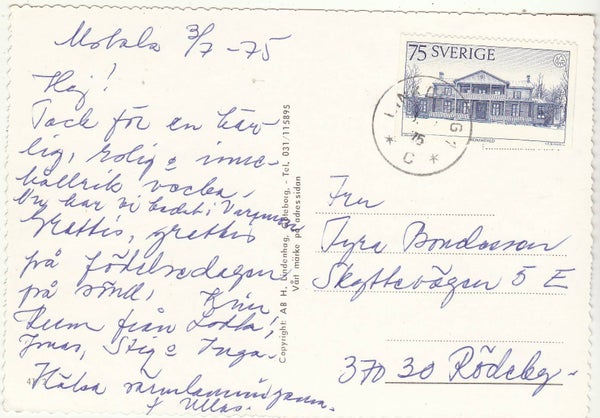 Motala 3/7 -75
Hej!
Tack för en här-
lig, rolig o inne-
hållrik vecka.
Nu har vi badat i Varamon
Grattis, grattis
på födelsedagen
på
från Lotta,
Stig o Inga.
Hälsa
Ullas.
Copyright: AB H. Lindenhag, Göteborg. - Tel. 031/115895
Vårt märke på adressidan
75 SVERIGE
75
C
Fru
Tyra Bondesson
Skyttevägen 5 E
370 30 Rödeby